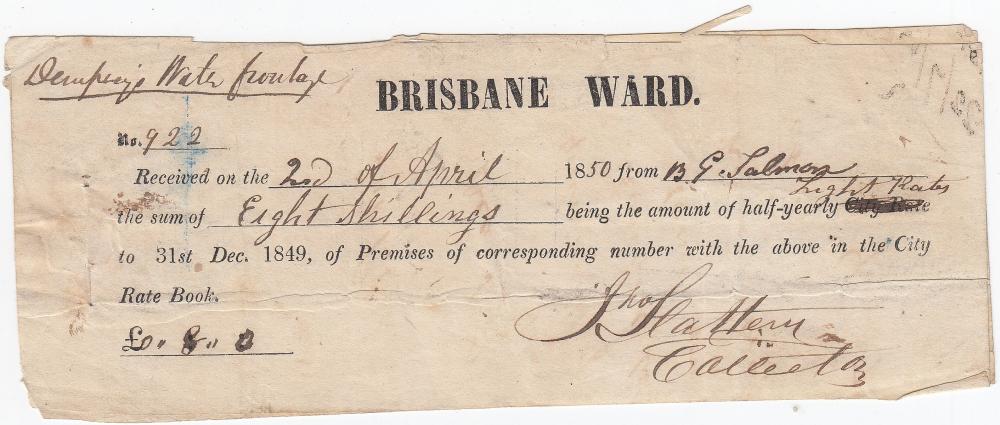 Dempsey's Water frontage
BRISBANE WARD.
No. 922
Received on the 2nd of April 1850 from B. G. Salmon
Light Rates
the sum of Eight Shillings being the amount of half-yearly City Rate
to 31st Dec. 1849, of Premises of corresponding number with the above in the City
Rate Book.
£0 " 8 " 0
Jno Slattery
Collector